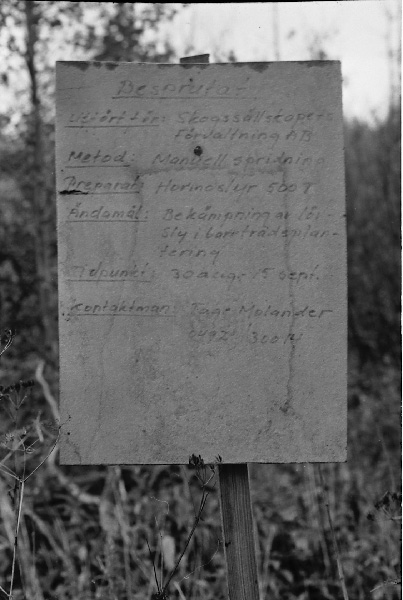 Besprutat
Utfört för: Skogssällskapets
Förvaltning AB
Metod: Manuell spridning
Preparat: Hormoslyr 500T
Ändamål: Bekämpning av löv-
sly i barrträdsplan-
tering
Tidpunkt: 30 aug - 15 sept.
Kontaktman: Tage Molander
0492/